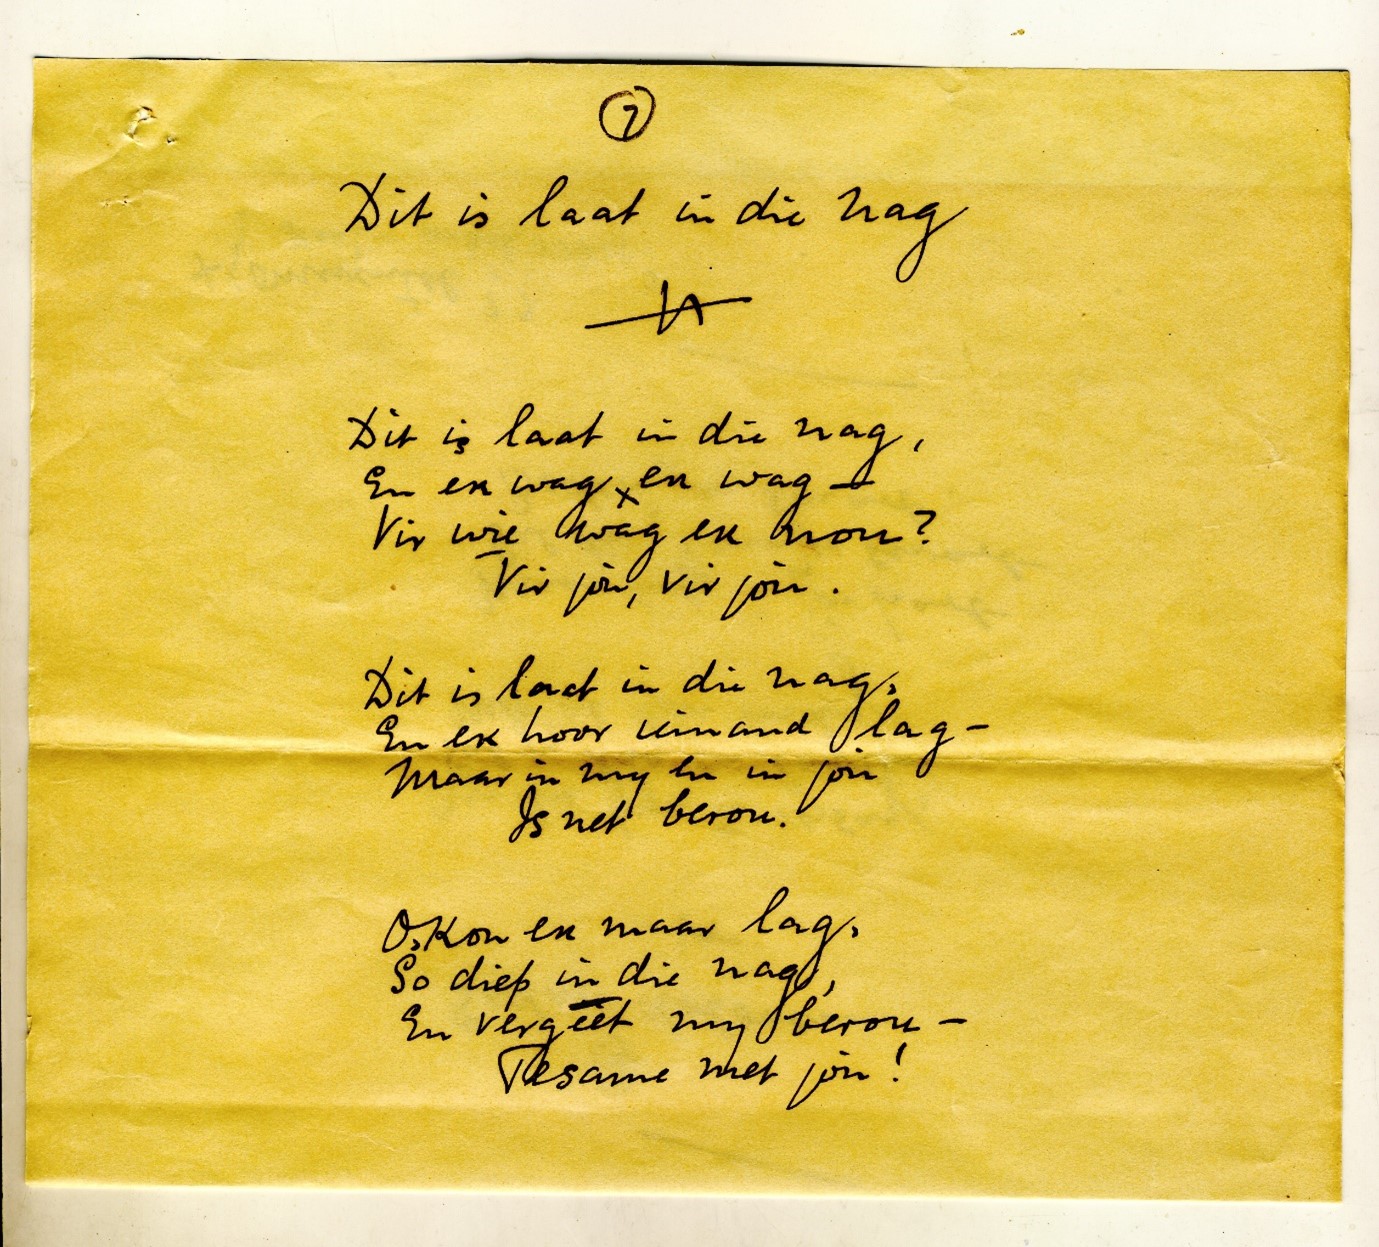 7
Dit is laat in die nag
Dit is laat in die nag,
En ek wag x en wag —
Vir wie wag ek nou?
Vir jou, vir jou.
Dit is laat in die nag,
En ek hoor iemand lag —
Maar in my en in jou
Is net berou.
O, kon ek maar lag,
So diep in die nag,
En vergeet my berou —
Tesame met jou!